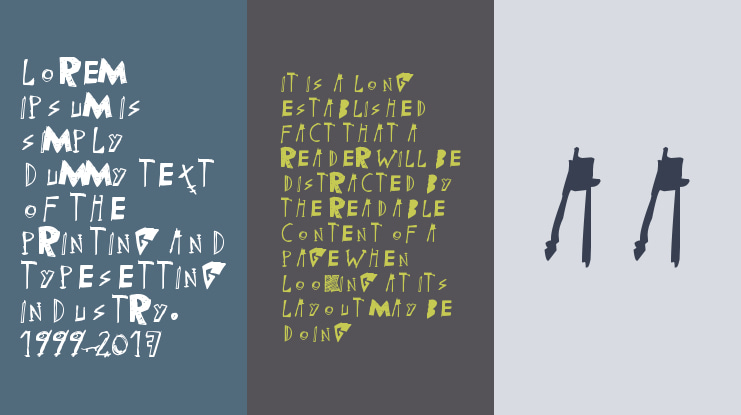 LOREM
IPSUM IS
SIMPLY
DUMMY TEXT
OF THE
PRINTING AND
TYPESETTING
INDUSTRY.
1999-2017
IT IS A LONG
ESTABLISHED
FACT THAT A
READER WILL BE
DISTRACTED BY
THE READABLE
CONTENT OF A
PAGE WHEN
LOOKING AT ITS
LAYOUT MAY BE
DOING
A A